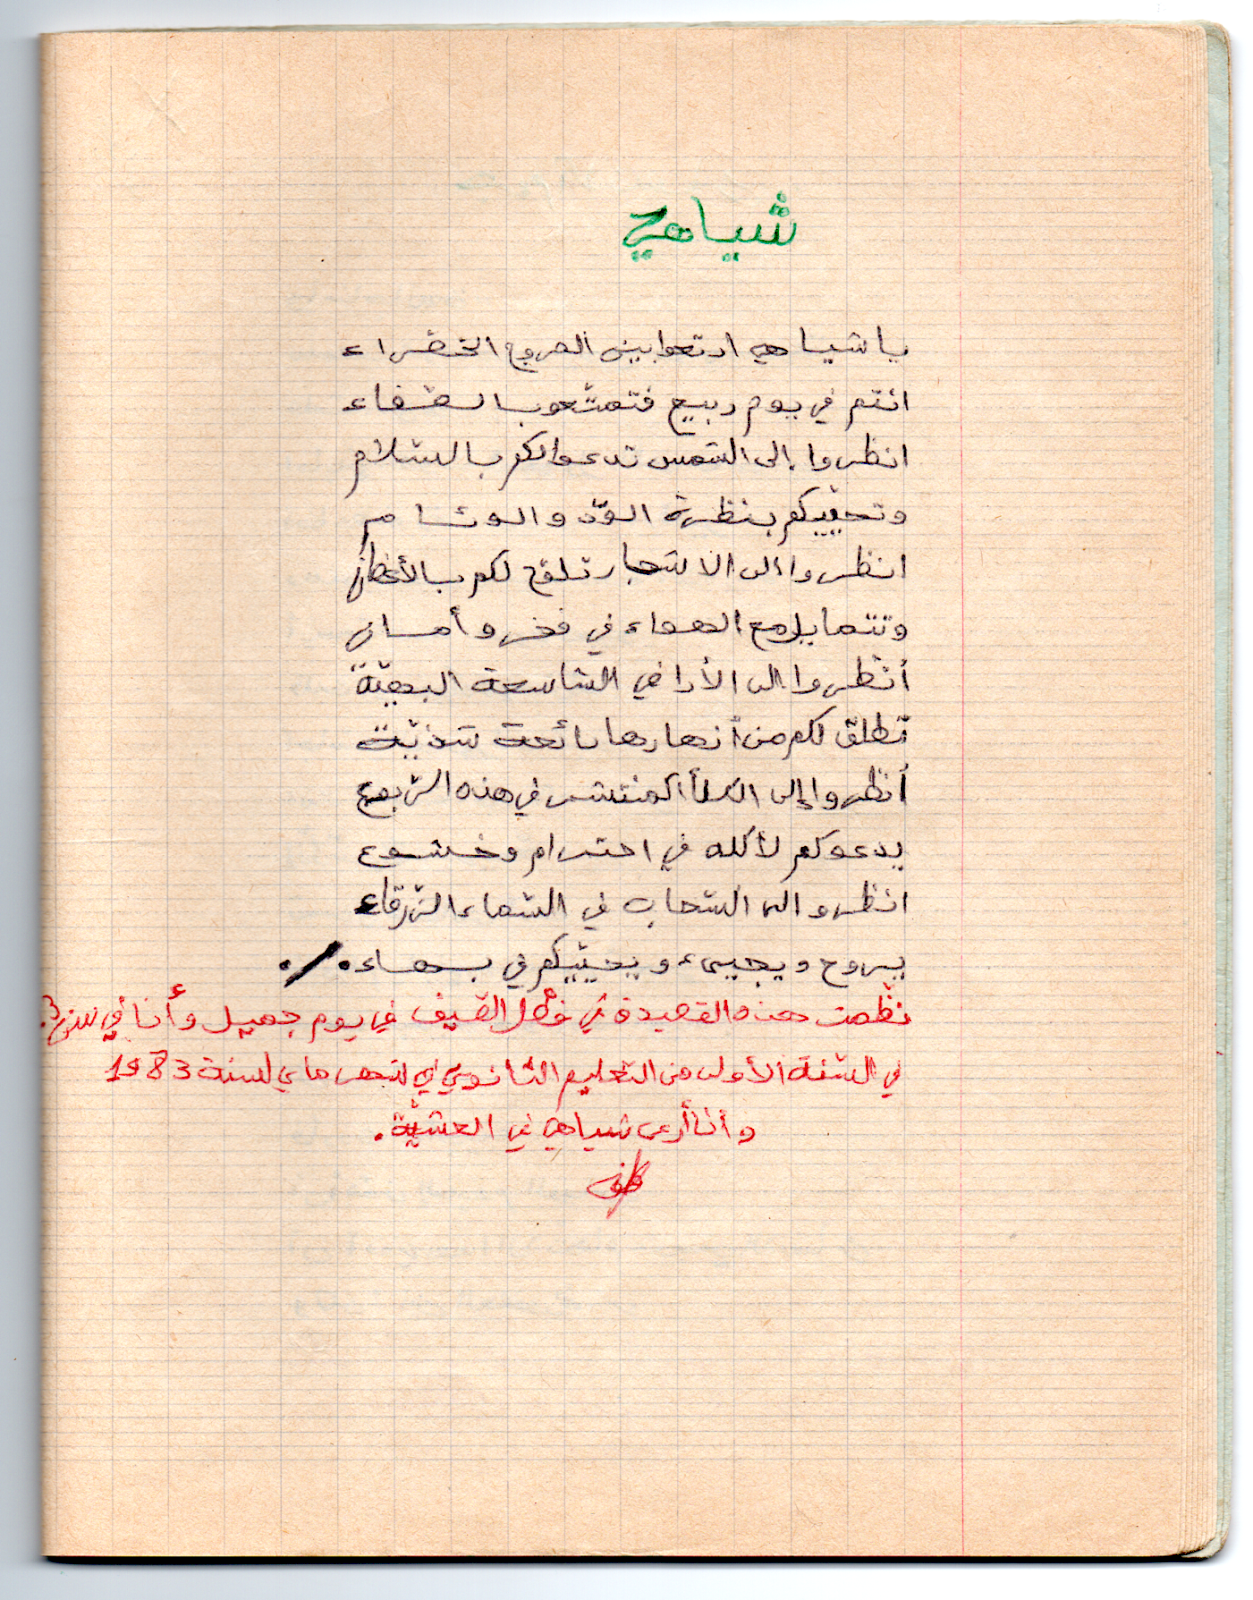 شياهي
يا شياهي ارتعوا بين المروج الخضراء
انتم في يوم ربيع فتمتّعوا بالصّفاء
انظروا إلى الشّمس تدعوا لكم بالسّلام
وتحيّيكم بنظرة الودّ والوئام
انظروا الى الاشجار تلوّح لكم بالأغصان
وتتمايل مع الهواء في فخر وأمان
أنظروا الى الأراضي الشّاسعة البهيّة
تطلق لكم من أنهارها رائحة شذيّة
أنظروا إلى الكلأ المنتشر في هذه الرّبوع
يدعوكم لأكله في احترام وخشوع
انظروا الى السّحاب في السّماء الزّرقاء
يروح ويجيىء ويحيّيكم في بهاء ./.
نظّمت هذه القصيدة في فصل الصّيف في يوم جميل وأنا في
في السّنة الأولى من التّعليم الثّانوي في شهر ماي لسنة 1983
وأنا أرعى شياهي في العشيّة.